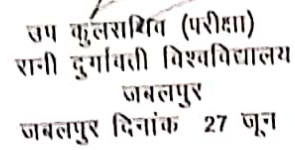 उप कुलसचिव (परीक्षा)
रानी दुर्गावती विश्वविद्यालय
जबलपुर
जबलपुर दिनांक 27 जून